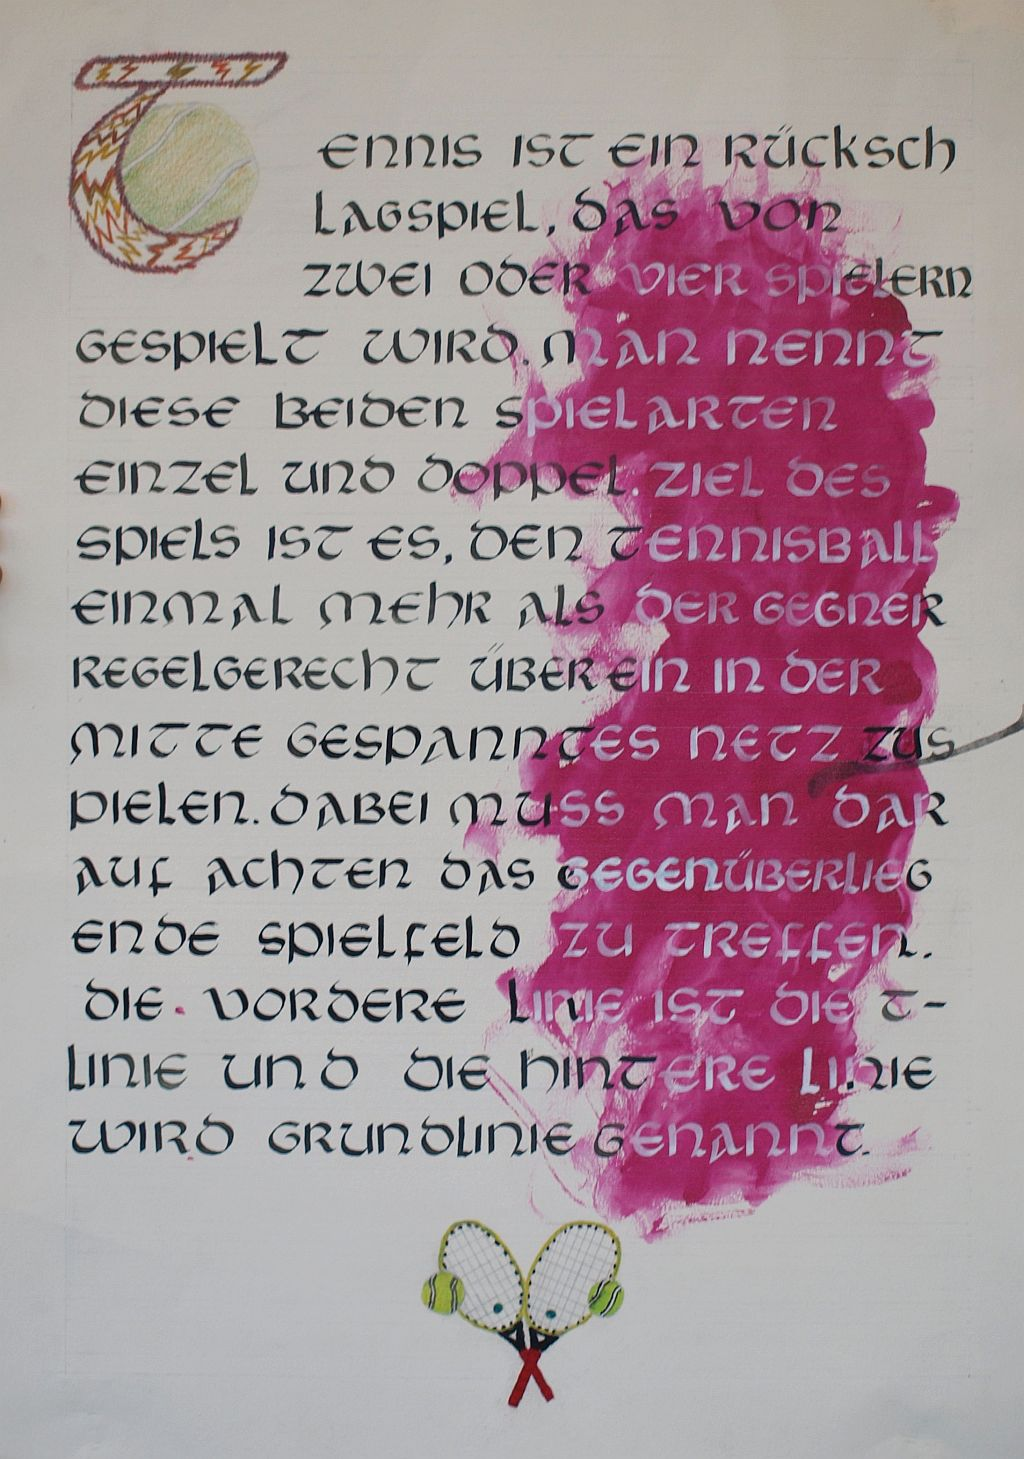 TENNIS IST EIN RÜCKSCH
LAGSPIEL, DAS VON
ZWEI ODER VIER SPIELERN
GESPIELT WIRD. MAN NENNT
DIESE BEIDEN SPIELARTEN
EINZEL UND DOPPEL. ZIEL DES
SPIELS IST ES, DEN TENNISBALL
EINMAL MEHR ALS DER GEGNER
REGELGERECHT ÜBER EIN IN DER
MITTE GESPANNTES NETZ ZUS
PIELEN. DABEI MUSS MAN DAR
AUF ACHTEN DAS GEGENÜBERLIEG
ENDE SPIELFELD ZU TREFFEN.
DIE VORDERE LINIE IST DIE T-
LINIE UND DIE HINTERE LINIE
WIRD GRUNDLINIE GENANNT.